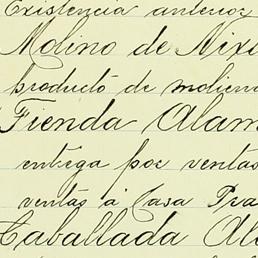 Existencia anterior
Molino de Nixt
producto de molien
Tienda Alam
entrega por ventas
ventas á Casa Pra
Caballada Al